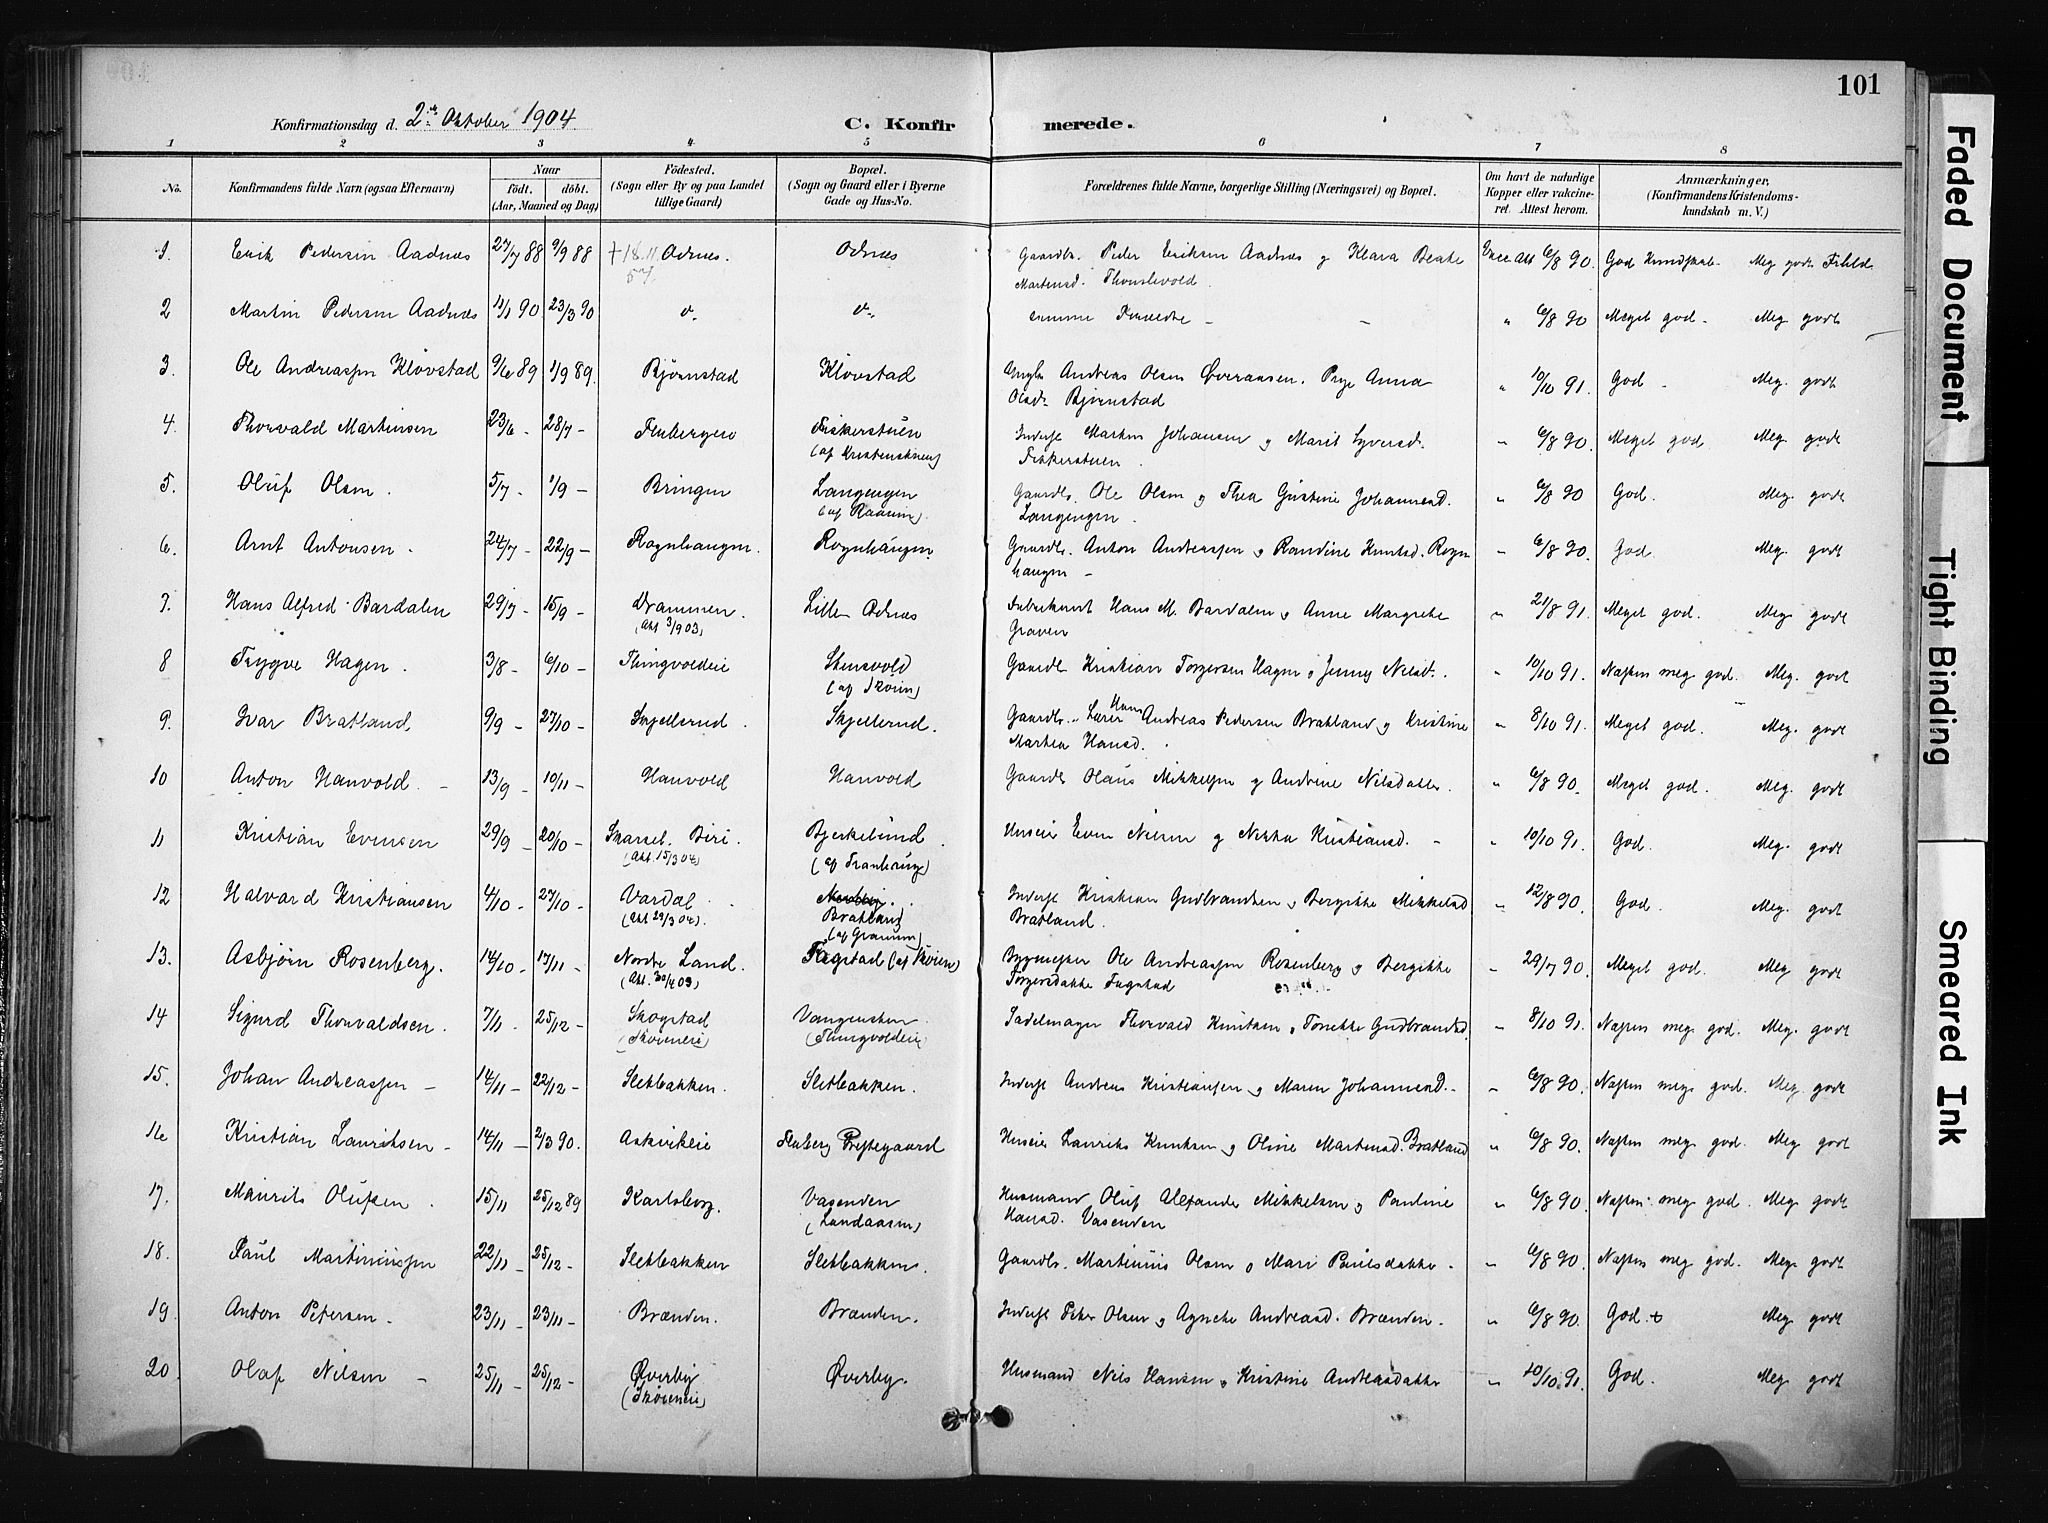 101
Konfirmationsdag d. 2den Oktober 1904 C. Konfirmerede.
1 2 3 4 5 6 7 8
No. Konfirmandens fulde Navn (ogsaa Efternavn) Naar født. døbt. (Aar, Maaned og Dag) Födested. (Sogn eller By og paa Landet tillige Gaard) Bopæl. (Sogn og Gaard eller i Byerne Gade og Hus-No. Forældrenes fulde Navne, borgerlige Stilling (Næringsvei) og Bopæl. Om havt de naturlige Kopper eller vakcineret. Attest herom. Anmærkninger, (Konfirmandens Kristendomskundskab m. V.)
1. Erik Pedersen Aadnæs 27/7 88 9/9 88 Odnæs. Odnæs Gaardbr. Peder Eriksen Aadnæs og Klara Beate Vacc. Att 6/8 90. God Kundskab. Meg godt
Martinsd.
2 Martin Pedersen Aadnæs 11/1 90 23/3 90 do. do. samme Forældre - - " 6/8 90 Meget god. Meg godt
3. Ole Andreassen Kløvstad 9/6 89 1/9 89. Bjørnstad Kløvstad Ungk. Andreas Olsen Øveraasen. Pige Anna " 10/10 91. God - Meg. godt
Olsd. Bjørnstad
4. Thorvald Martinsen 23/6 - 28/7 - Fiskerstuen Inderst Martin Johansen og Marit Syversd. " 6/8 90. Meget god Meg. godt
Fiskerstuen.
5. Oluf Olsen. 5/7 - 1/9 - Bringen Langengen Gaardbr. Ole Olsen og Thea Gustine Johannesd. " 6/8 90 God. Meg. godt
(af Raaum) Langengen.
6. Arnt Antonsen - 24/7 - 22/9 - Rognhaugen. Rognhaugen. Gaardbr. Anton Andreassen og Randine Knutsd. Rogn " 6/8 90. God. Meg. godt
haugen -
7. Hans Alfred Bardalen 29/7 - 15/9 - Drammen. Lille Odnæs Hans M. Bardalen og Anne Margrethe " 21/8 91. Meget god. Meg godt
(Att 3/9 03) Graven
8 Trygve Hagen. 3/8 - 6/10 - Thingvoldeie Stensvold Gaardbr Kristian Torgersen Hagen og Jenny Nilsd. " 10/10 91. Næsten meg. god. Meg. godt
(af Skøien)
9. Ivar Bratland 9/9 - 27/10 - Skjellerud. Skjellerud. Gaardbr. Lærer Andreas Pedersen Bratland og Kristine " 8/10 91. Meget god. Meg. godt
Marthea Hansd.
10 Anton Hanvold. - 13/9 - 10/11 - Hanvold Hanvold Gaardbr Olaus Mikkelsen og Andrine Nilsdatter. " 6/8 90. Meget god. Meg. godt
11 Kristian Evensen 29/9 - 20/10 - Biri. Bjerkelund. Huseier Even Nilsen og Kristiansd. - " 10/10 91. God. Meg. godt
(Att. 15/3 04)
12 Halvard Kristiansen 4/10 - 27/10 - Vardal Bratland Inderst Kristian Gudbrandsen og Bergitte Mikkelsd " 12/8 90. God. Meg. godt
(Att 29/3 04). (af Granum) Bratland.
13. Asbjørn Rosenberg. 14/10 - 17/11 - Nordre Land. Fagstad (af Skøien) Bygmester Ole Andreassen Rosenberg og Bergitte " 29/7 90. Meget god. Meg godt
(Att. 30/4 03) Torgersdatter Fagstad
14 Sigurd Thorvaldsen. 7/11 - 25/12 - Skogstad Vangensten. Sadelmager Thorvald Knutsen og Tonette Gudbrandsd. " 8/10 91. Næsten meg god. Meg. godt
(Skøieneie) (Thingvoldeie)
15. Johan Andreassen - 14/11 - 22/12 - Sletbakken. Sletbakken. Inderst Andreas Kristiansen og Maren Johannesd. - " 6/8 90. Næsten meg. god. Meg. godt
16 Kristian Lauritsen - 14/11 - 2/3 90. Askvikeie Fluberg Prestegaard Huseier Laurits Knutsen og Oline Martinsd. Bratland " 6/8 90. Næsten meg god. Meg godt
17. Maurits Olufsen. 15/11 25/12 89 Karlsborg. Vasenden Husmand Oluf Alexander Mikkelsen og Pauline " 6/8 90. Næsten meg god. Meg godt
(Landaasen) Hansd. Vasenden
18. Paul Martiniussen 22/11 - 25/12 - Sletbakken Sletbakken. Gaardbr. Martinius Olsen og Mari Paulsdatter. - " 6/8 90. Næsten meg god. Meg. godt
19. Anton Petersen - 23/11 - 23/11 - Brænden. Brænden. Inderst Peter Olsen og Agnethe Andreasd. Brænden. " 6/8 90. God. + Meg godt
20. Olaf Nilsen - 25/11 - 25/12 - Øverby Øverby. Husmand Nils Hansen og Kristine Andreasdatter " 10/10 91. God. Meg. godt
(Skøieneie)
Faded Document
Tight Binding
Smeared Ink